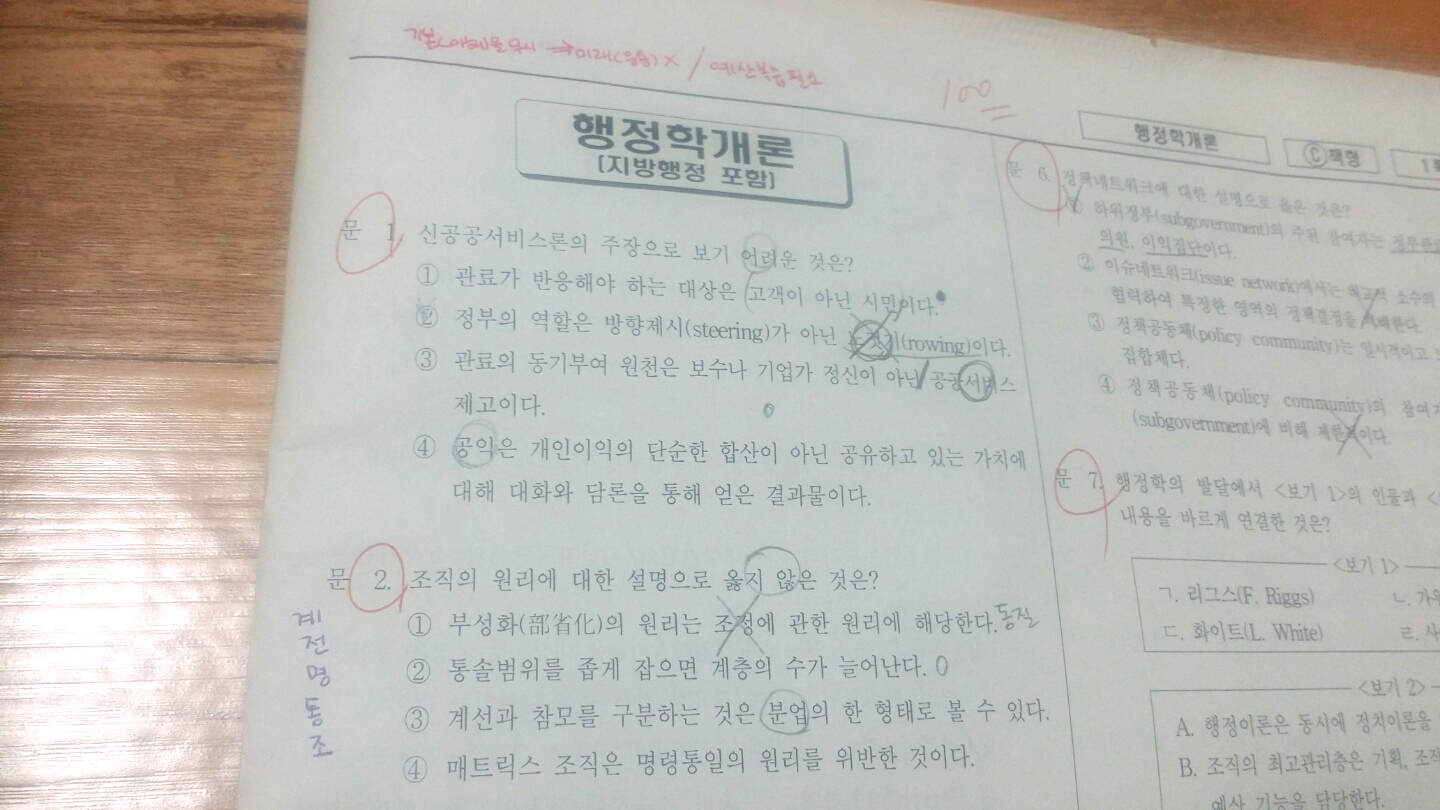 기본(이해)을 무시 ⇒ 미래(응용) X / 예산복습필요
100
행정학개론
[지방행정 포함]
행정학개론
Ⓒ책형
1
문 1. 신공공서비스론의 주장으로 보기 어려운 것은?
① 관료가 반응해야 하는 대상은 고객이 아닌 시민이다.
② 정부의 역할은 방향제시(steering)가 아닌 노젓기(rowing)이다.
③ 관료의 동기부여 원천은 보수나 기업가 정신이 아닌 공공서비스
제고이다.
④ 공익은 개인이익의 단순한 합산이 아닌 공유하고 있는 가치에
대해 대화와 담론을 통해 얻은 결과물이다.
문 2. 조직의 원리에 대한 설명으로 옳지 않은 것은?
① 부성화(部省化)의 원리는 조정에 관한 원리에 해당한다. 동질
② 통솔범위를 좁게 잡으면 계층의 수가 늘어난다. O
③ 계선과 참모를 구분하는 것은 분업의 한 형태로 볼 수 있다.
④ 매트릭스 조직은 명령통일의 원리를 위반한 것이다.
계
전
명
통
조
문 6. 정책네트워크에 대한 설명으로 옳은 것은?
① 하위정부(subgovernment)의 주된 참여자는 정부관료
의원, 이익집단이다.
② 이슈네트워크(issue network)에서는 소수의
협력하여 특정한 영역의 정책결정을 지배한다.
③ 정책공동체(policy community)는 일시적이고
집합체다.
④ 정책공동체(policy community)의 참여자
(subgovernment)에 비해 제한적이다.
문 7. 행정학의 발달에서 <보기 1>의 인물과 <
내용을 바르게 연결한 것은?
<보기 1>
ㄱ. 리그스(F. Riggs)
ㄴ.
ㄷ. 화이트(L. White)
ㄹ. 사
<보기 2>
A. 행정이론은 동시에 정치이론을
B. 조직의 최고관리층은 기획, 조직
예산 기능을 담당한다.